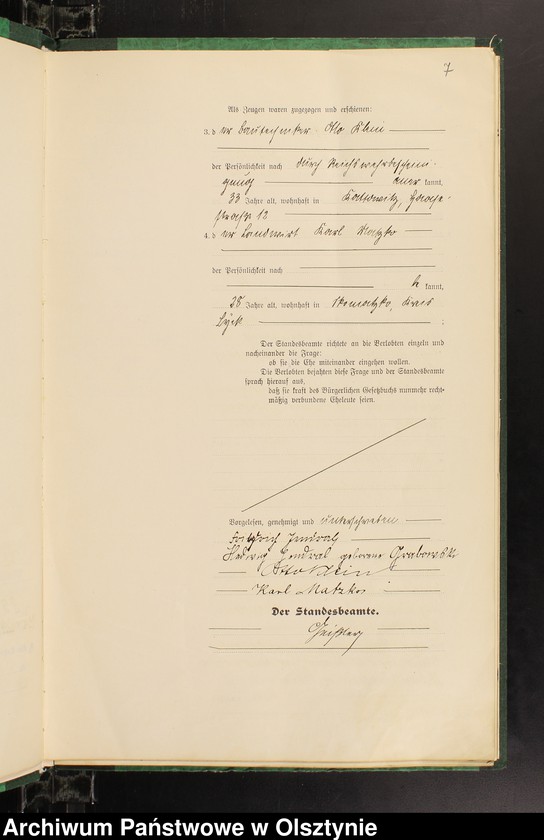 7
Als Zeugen waren zugezogen und erschienen:
3. der Bautechniker Otto Klein
der Persönlichkeit nach durch
kannt,
33 Jahre alt, wohnhaft in Kattowitz,
straße 12
4. der Landwirt Karl Matzko
der Persönlichkeit nach
kannt,
38 Jahre alt, wohnhaft in Kreis
Lyck ;
Der Standesbeamte richtete an die Verlobten einzeln und
nacheinander die Frage:
ob sie die Ehe miteinander eingehen wollen.
Die Verlobten bejahten diese Frage und der Standesbeamte
sprach hierauf aus,
daß sie kraft des Bürgerlichen Gesetzbuchs nunmehr recht-
mäßig verbundene Eheleute seien.
Vorgelesen, genehmigt und unterschrieben
Hedwig geborene Grabowski
Otto Klein
Karl Matzko
Der Standesbeamte.
Archiwum Państwowe w Olsztynie